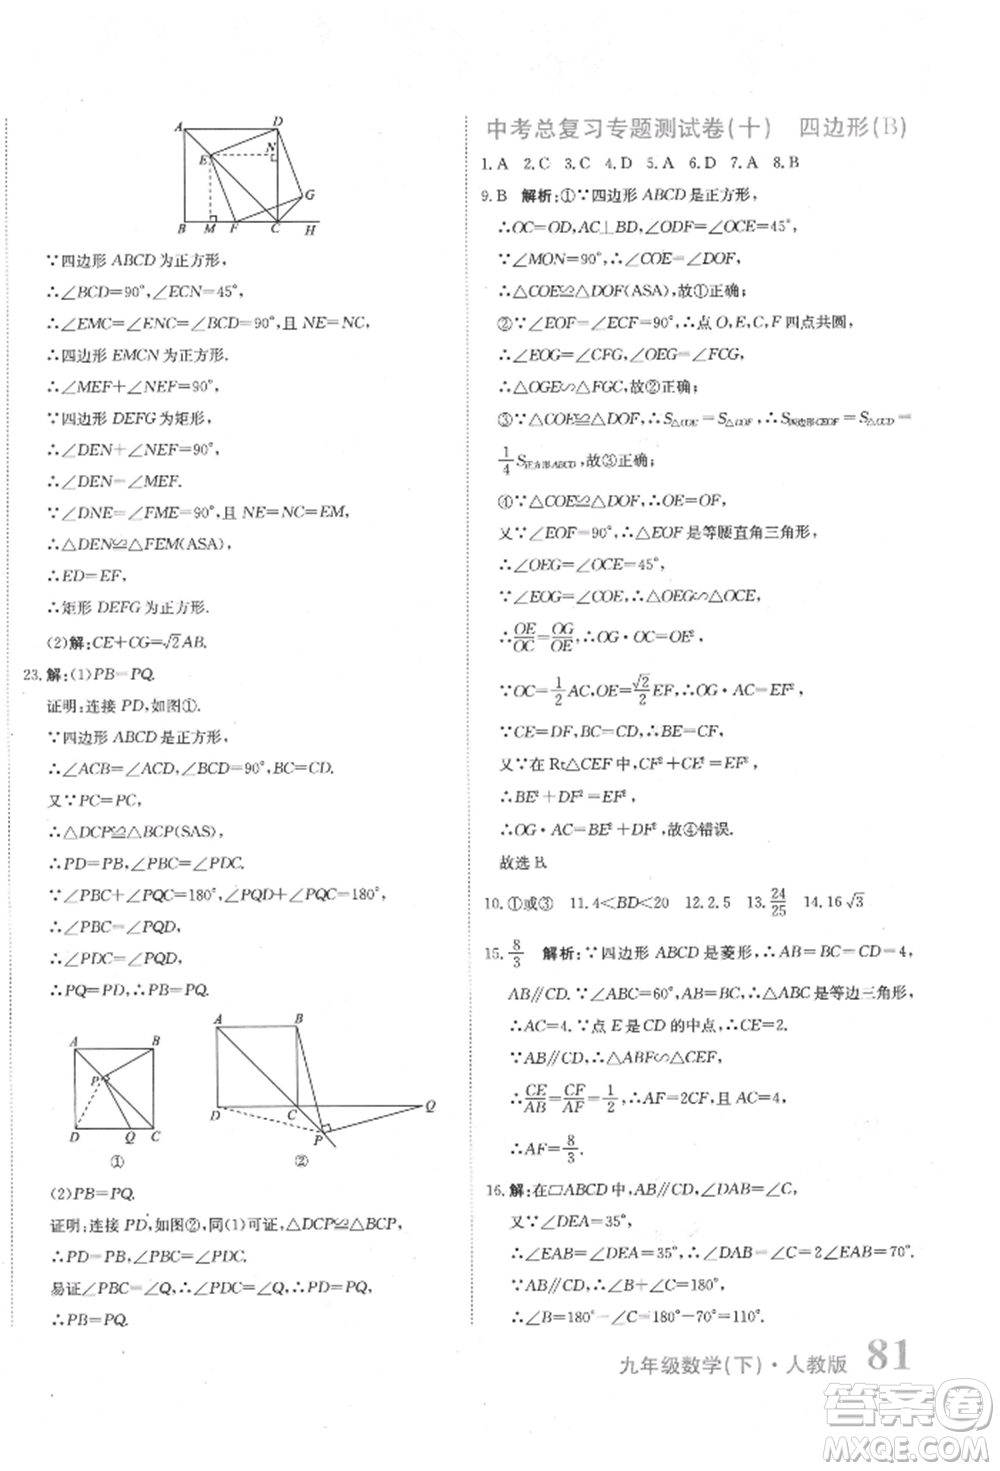 A D E N G B M F C H
∵四边形 ABCD 为正方形,
∴∠BCD=90°,∠ECN=45°,
∴∠EMC=∠ENC=90°,且 NE=NC,
∴四边形 EMCN 为正方形.
∴∠MEF+∠NEF=90°,
∵四边形 DEFG 为矩形,
∴∠DEN+∠NEF=90°,
∴∠DEN=∠MEF.
∵∠DNE=∠FME=90°,且 NE=EM,
∴△DEN≌△FEM(ASA),
∴ED=EF,
∴矩形 DEFG 为正方形.
(2)解:CE+CG=√2AB.
23.解:(1)PB=PQ.
证明:连接 PD,如图①.
∵四边形 ABCD 是正方形,
∴∠ACB=∠ACD,∠BCD=90°,BC=CD.
又∵PC=PC,
∴△DCP≌△BCP(SAS),
∴PD=PB,∠PBC=∠PDC,
∵∠PBC+∠PQC=180°,∠PQD+∠PQC=180°,
∴∠PBC=∠PQD,
∴∠PDC=∠PQD,
∴PQ=PD,∴PB=PQ.
A B P D Q C
①
A B D C Q P
②
(2)PB=PQ.
证明:连接 PD,如图②,同(1)可证,△DCP≌△BCP,
∴PD=PB,∠PBC=∠PDC.
易证∠PBC=∠Q,∴∠PDC=∠Q,
∴PD=PQ.
∴PB=PQ.
中考总复习专题测试卷(十) 四边形(B)
1.A 2.C 3.C 4.D 5.A 6.D 7.A 8.B
9.B 解析:①∵四边形 ABCD 是正方形,
∴OC=OD,AC⊥BD,∠ODF=∠OCE=45°,
∵∠MON=90°,∴∠COE=∠DOF,
∴△COE≌△DOF(ASA),故①正确;
②∵∠EOF=∠ECF=90°,∴点 O,E,C,F 四点共圆,
∴∠EOG=∠CFG,∠OEG=∠FCG,
∴△OGE∽△FGC,故②正确;
③∵△COE≌△DOF,∴S△COE=S△DOF,∴S四边形CEOF=S△OCD=
1/4 S正方形ABCD,故③正确;
④∵△COE≌△DOF,∴OE=OF,
又∵∠EOF=90°,∴△EOF 是等腰直角三角形,
∴∠OEG=∠OCE=45°,
∵∠EOG=∠COE,∴△OEG∽△OCE,
∴OE/OC=OG/OE,∴OG·OC=OE²,
∵OC=1/2 AC,OE=√2/2 EF,∴OG·AC=EF²,
∵CE=DF,BC=CD,∴BE=CF,
又∵在 Rt△CEF 中,CF²+CE²=EF²,
∴BE²+DF²=EF²,
∴OG·AC=BE²+DF²,故④错误.
故选 B.
10.①或③ 11.4<BD<20 12.2.5 13.24/25 14.16√3
15.8/3 解析:∵四边形 ABCD 是菱形,∴AB=BC=CD=4,
AB∥CD.∵∠ABC=60°,∴△ABC 是等边三角形,
∴AC=4.∵点 E 是 CD 的中点,∴CE=2.
∵AB∥CD,∴△ABF∽△CEF,
∴CE/AB=CF/AF=1/2,∴AF=2CF,
∴AF=8/3.
16.解:在▱ABCD 中,AB∥CD,∠DAB=∠C,
又∵∠DEA=35°,
∴∠EAB=∠DEA=35°,∴∠C=2∠EAB=70°.
∵AB∥CD,∴∠B+∠C=180°,
∴∠B=180°-∠C=180°-70°=110°.
九年级数学(下)·人教版 81
答案圈
MXQE.COM